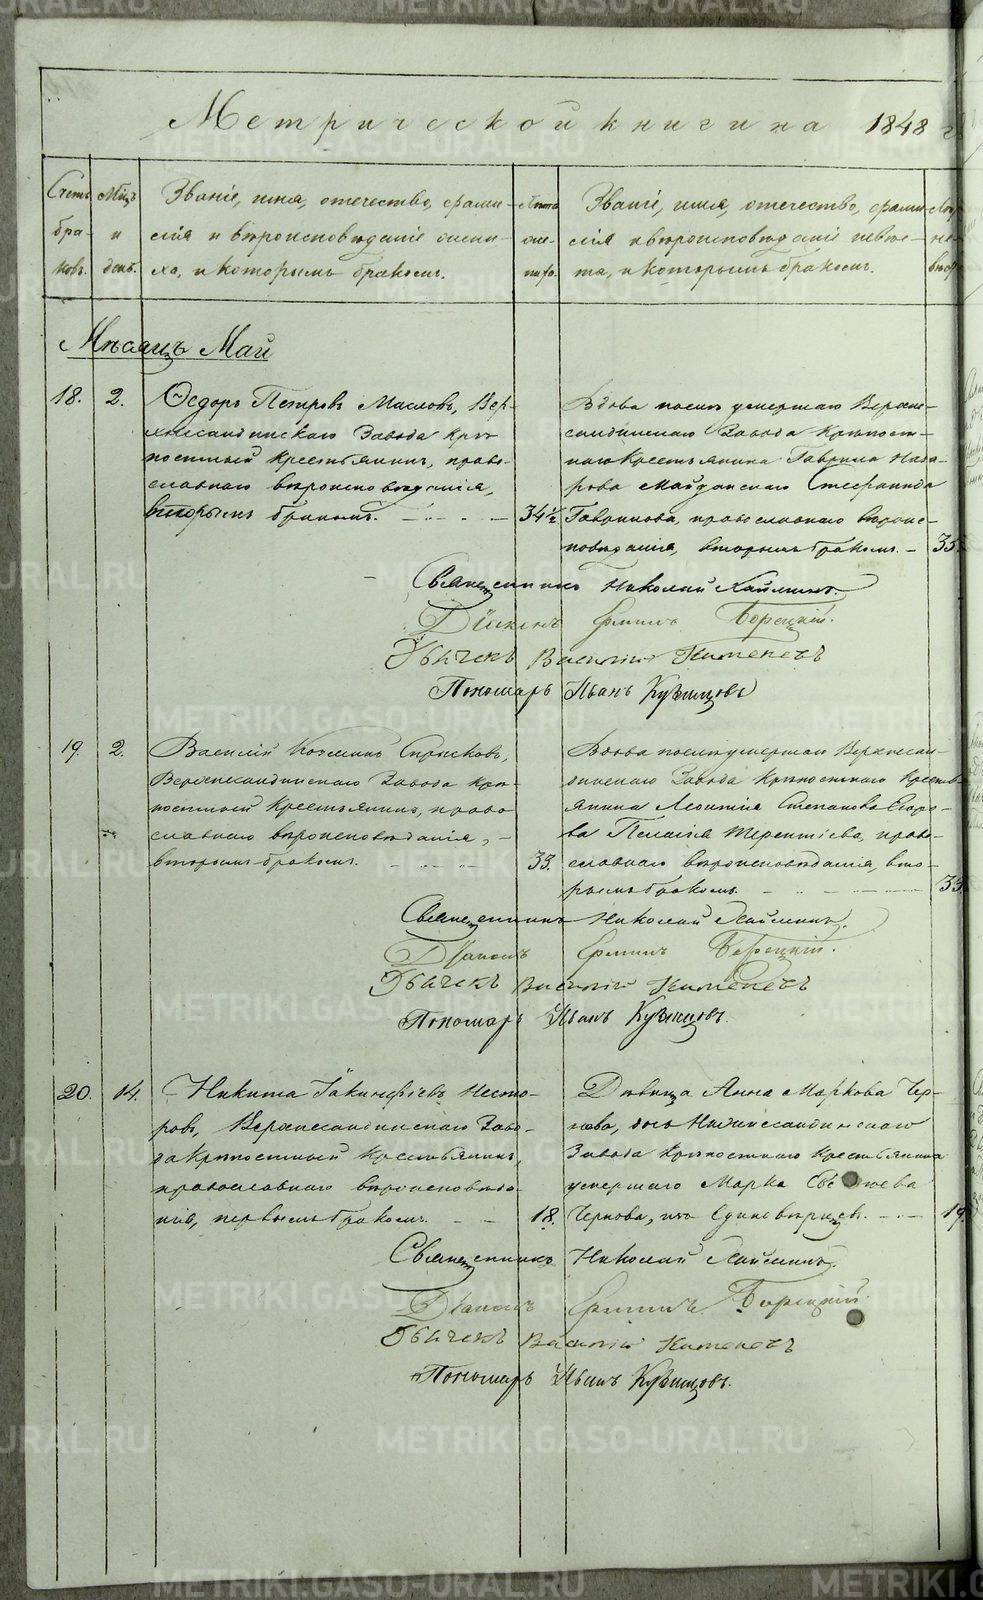 Метрической книги на 1848 г
Счетъ браковъ.
Мѣцъ и день.
Званіе, имя, отечество, фами-
лія и вѣроисповѣданіе жени-
ха, и которымъ бракомъ.
Лѣта жениха.
Званіе, имя, отечество, фами-
лія и вѣроисповѣданіе невѣс-
та, и которымъ бракомъ.
Мѣсяцъ Май
18. 2. Ѳедоръ Петровъ Масловъ, Вер-
хнесалдинскаго Завода крѣ-
постный крестьянинъ, право-
славнаго вѣроисповѣданія,
вторымъ бракомъ. 34½
Вдова послѣ умершаго Верхне-
салдинскаго Завода крѣпост-
наго крестьянина Гаврила Наза-
рова Майданскаго Стефанида
Гаврилова, православнаго вѣроис-
повѣданія, вторымъ бракомъ. 35.
Священникъ Николай
Діаконъ Ермилъ Борецкій.
Дьячекъ Василій
Пономарь Иванъ Кузнцовъ
19. 2. Василій Козминъ
Верхнесалдинскаго Завода крѣ-
постный крестьянинъ, право
славнаго вѣроисповѣданія,
вторымъ бракомъ. 33.
Вдова послѣ умершаго Верхнесал-
динскаго Завода крѣпостнаго кресть-
янина Леонтія Степанова Егоро-
ва Пелагія Терентіева, право-
славнаго вѣроисповѣданія, вто-
рымъ бракомъ 33.
Священникъ Николай
Діаконъ Ермилъ Борецкій.
Дьячекъ Василій
Пономарь Иванъ Кузнцовъ.
20. 14. Никита Іакинѳіевъ Несто-
ровъ, Верхнесалдинскаго Заво-
да крѣпостный крестьянинъ,
православнаго вѣроисповѣда-
нія, первымъ бракомъ. 18.
Дѣвица Анна Маркова Чер-
нова, дочь Нижнесалдинскаго
Завода крѣпостнаго крестьянина
умершаго Марка
Чернова, изъ Единовѣрцевъ. 19.
Священникъ Николай
Діаконъ Ермилъ Борецкій.
Дьячекъ Василій
Пономарь Иванъ Кузнцовъ.
METRIKI.GASO-URAL.RU